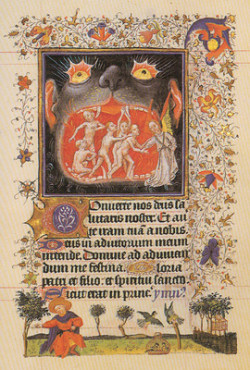 Onuerte nos deus sa
lutaris noster. Et auer
te iram tuā a nobis.
Deus in adiutorium meum
intende. Domine ad adiuuan
dum me festina. Gloria
patri et filio: et spiritui sancto
Sicut erat in princ. ymn⁹